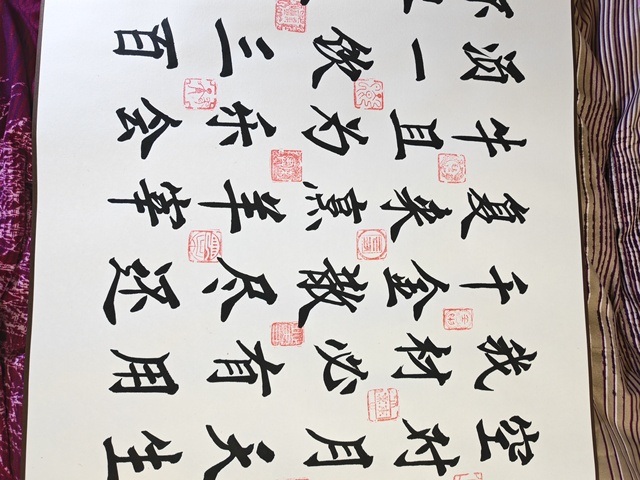 空对月天生
我材必有用
千金散尽还
复来烹羊宰
牛且为乐会
须一饮三百